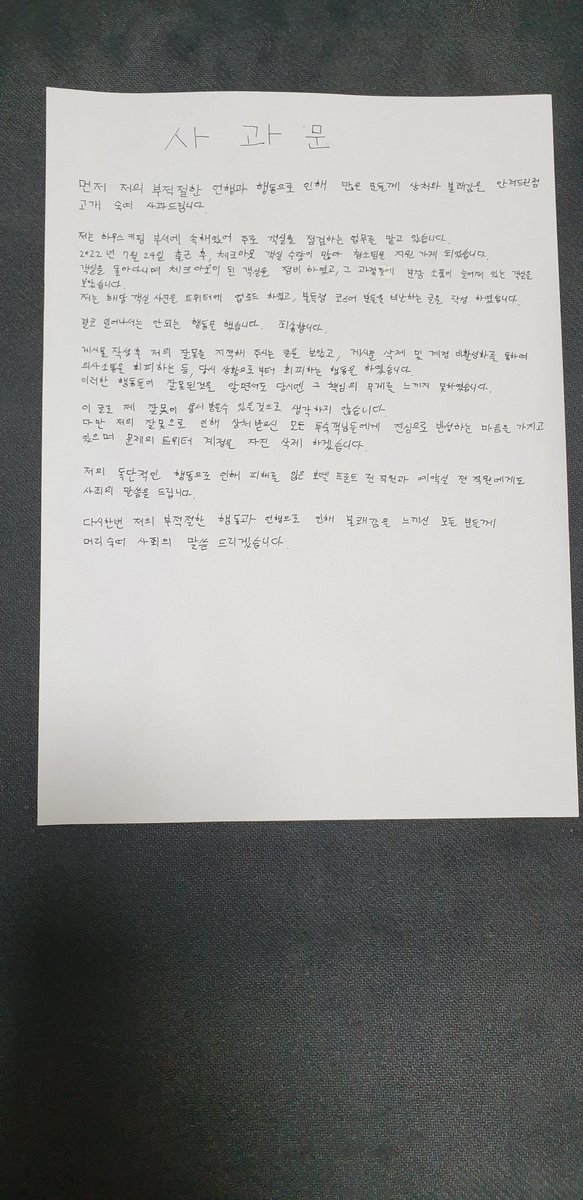 사 과 문
먼저 저의 부적절한 언행과 행동으로 인해 많은 분들께 상처와 불쾌감을 안겨드린점
고개 숙여 사과드립니다.
저는 하우스키핑 부서에 속해있어 주로 객실을 점검하는 업무를 맡고 있습니다.
2022년 7월 24일 출근 후, 체크아웃 객실 수량이 많아 청소팀을 지원 가게 되었습니다.
객실을 돌아다니며 체크아웃이 된 객실을 정비 하였고, 그 과정중에 분장 소품이 늘어져 있는 객실을
보았습니다.
저는 해당 객실 사진을 트위터에 업로드 하였고, 불특정 코스어 분들을 비난하는 글을 작성 하였습니다.
결코 일어나서는 안되는 행동을 했습니다. 죄송합니다.
게시물 작성후 저의 잘못을 지적해 주시는 글을 보았고, 게시물 삭제 및 계정 비활성화를 통하여
의사소통을 회피하는 등, 당시 상황으로부터 회피하는 행동을 하였습니다.
이러한 행동들이 잘못된것을 알면서도 당시엔 그 책임의 무게를 느끼지 못하였습니다.
이 글로 제 잘못이 용서 받을수 있을것으로 생각하지 않습니다.
다만 저의 잘못으로 인해 상처받으신 모든 투숙객님들에게 진심으로 반성하는 마음을 가지고
있으며 문제의 트위터 계정을 자진 삭제 하겠습니다.
저의 독단적인 행동으로 인해 피해를 입은 호텔 프론트 전 직원과 예약실 전 직원에게도
사죄의 말씀을 드립니다.
다시한번 저의 부적절한 행동과 언행으로 인해 불쾌감을 느끼신 모든 분들께
머리숙여 사죄의 말씀 드리겠습니다.